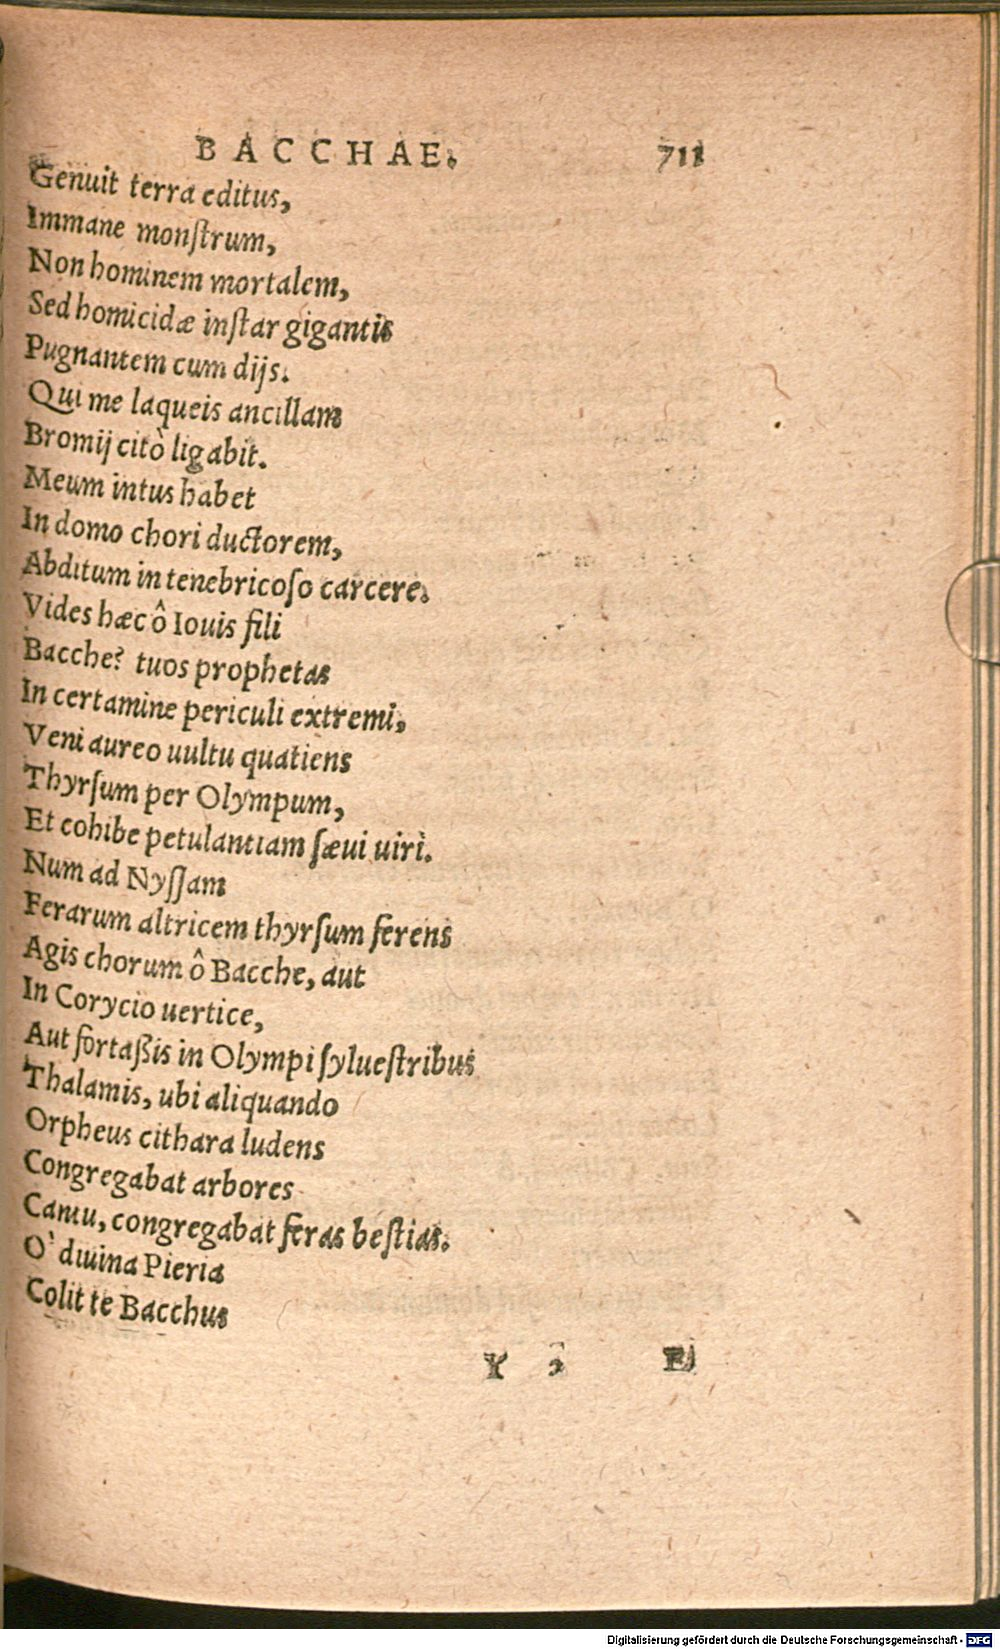 BACCHAE. 711
Genuit terra editus,
Immane monſtrum,
Non hominem mortalem,
Sed homicidæ inſtar gigantis
Pugnantem cum dijs.
Qui me laqueis ancillam
Bromij citò ligabit.
Meum intus habet
In domo chori ductorem,
Abditum in tenebricoſo carcere.
Vides hæc ô Iouis fili
Bacche? tuos prophetas
In certamine periculi extremi,
Veni aureo uultu quatiens
Thyrſum per Olympum,
Et cohibe petulantiam ſæui uiri.
Num ad Nyſſam
Ferarum altricem thyrſum ferens
Agis chorum ô Bacche, aut
In Corycio uertice,
Aut fortaßis in Olympi ſylueſtribus
Thalamis, ubi aliquando
Orpheus cithara ludens
Congregabat arbores
Cantu, congregabat feras beſtias.
O' diuina Pieria
Colit te Bacchus
Y 2 Et
Digitalisierung gefördert durch die Deutsche Forschungsgemeinschaft - DFG